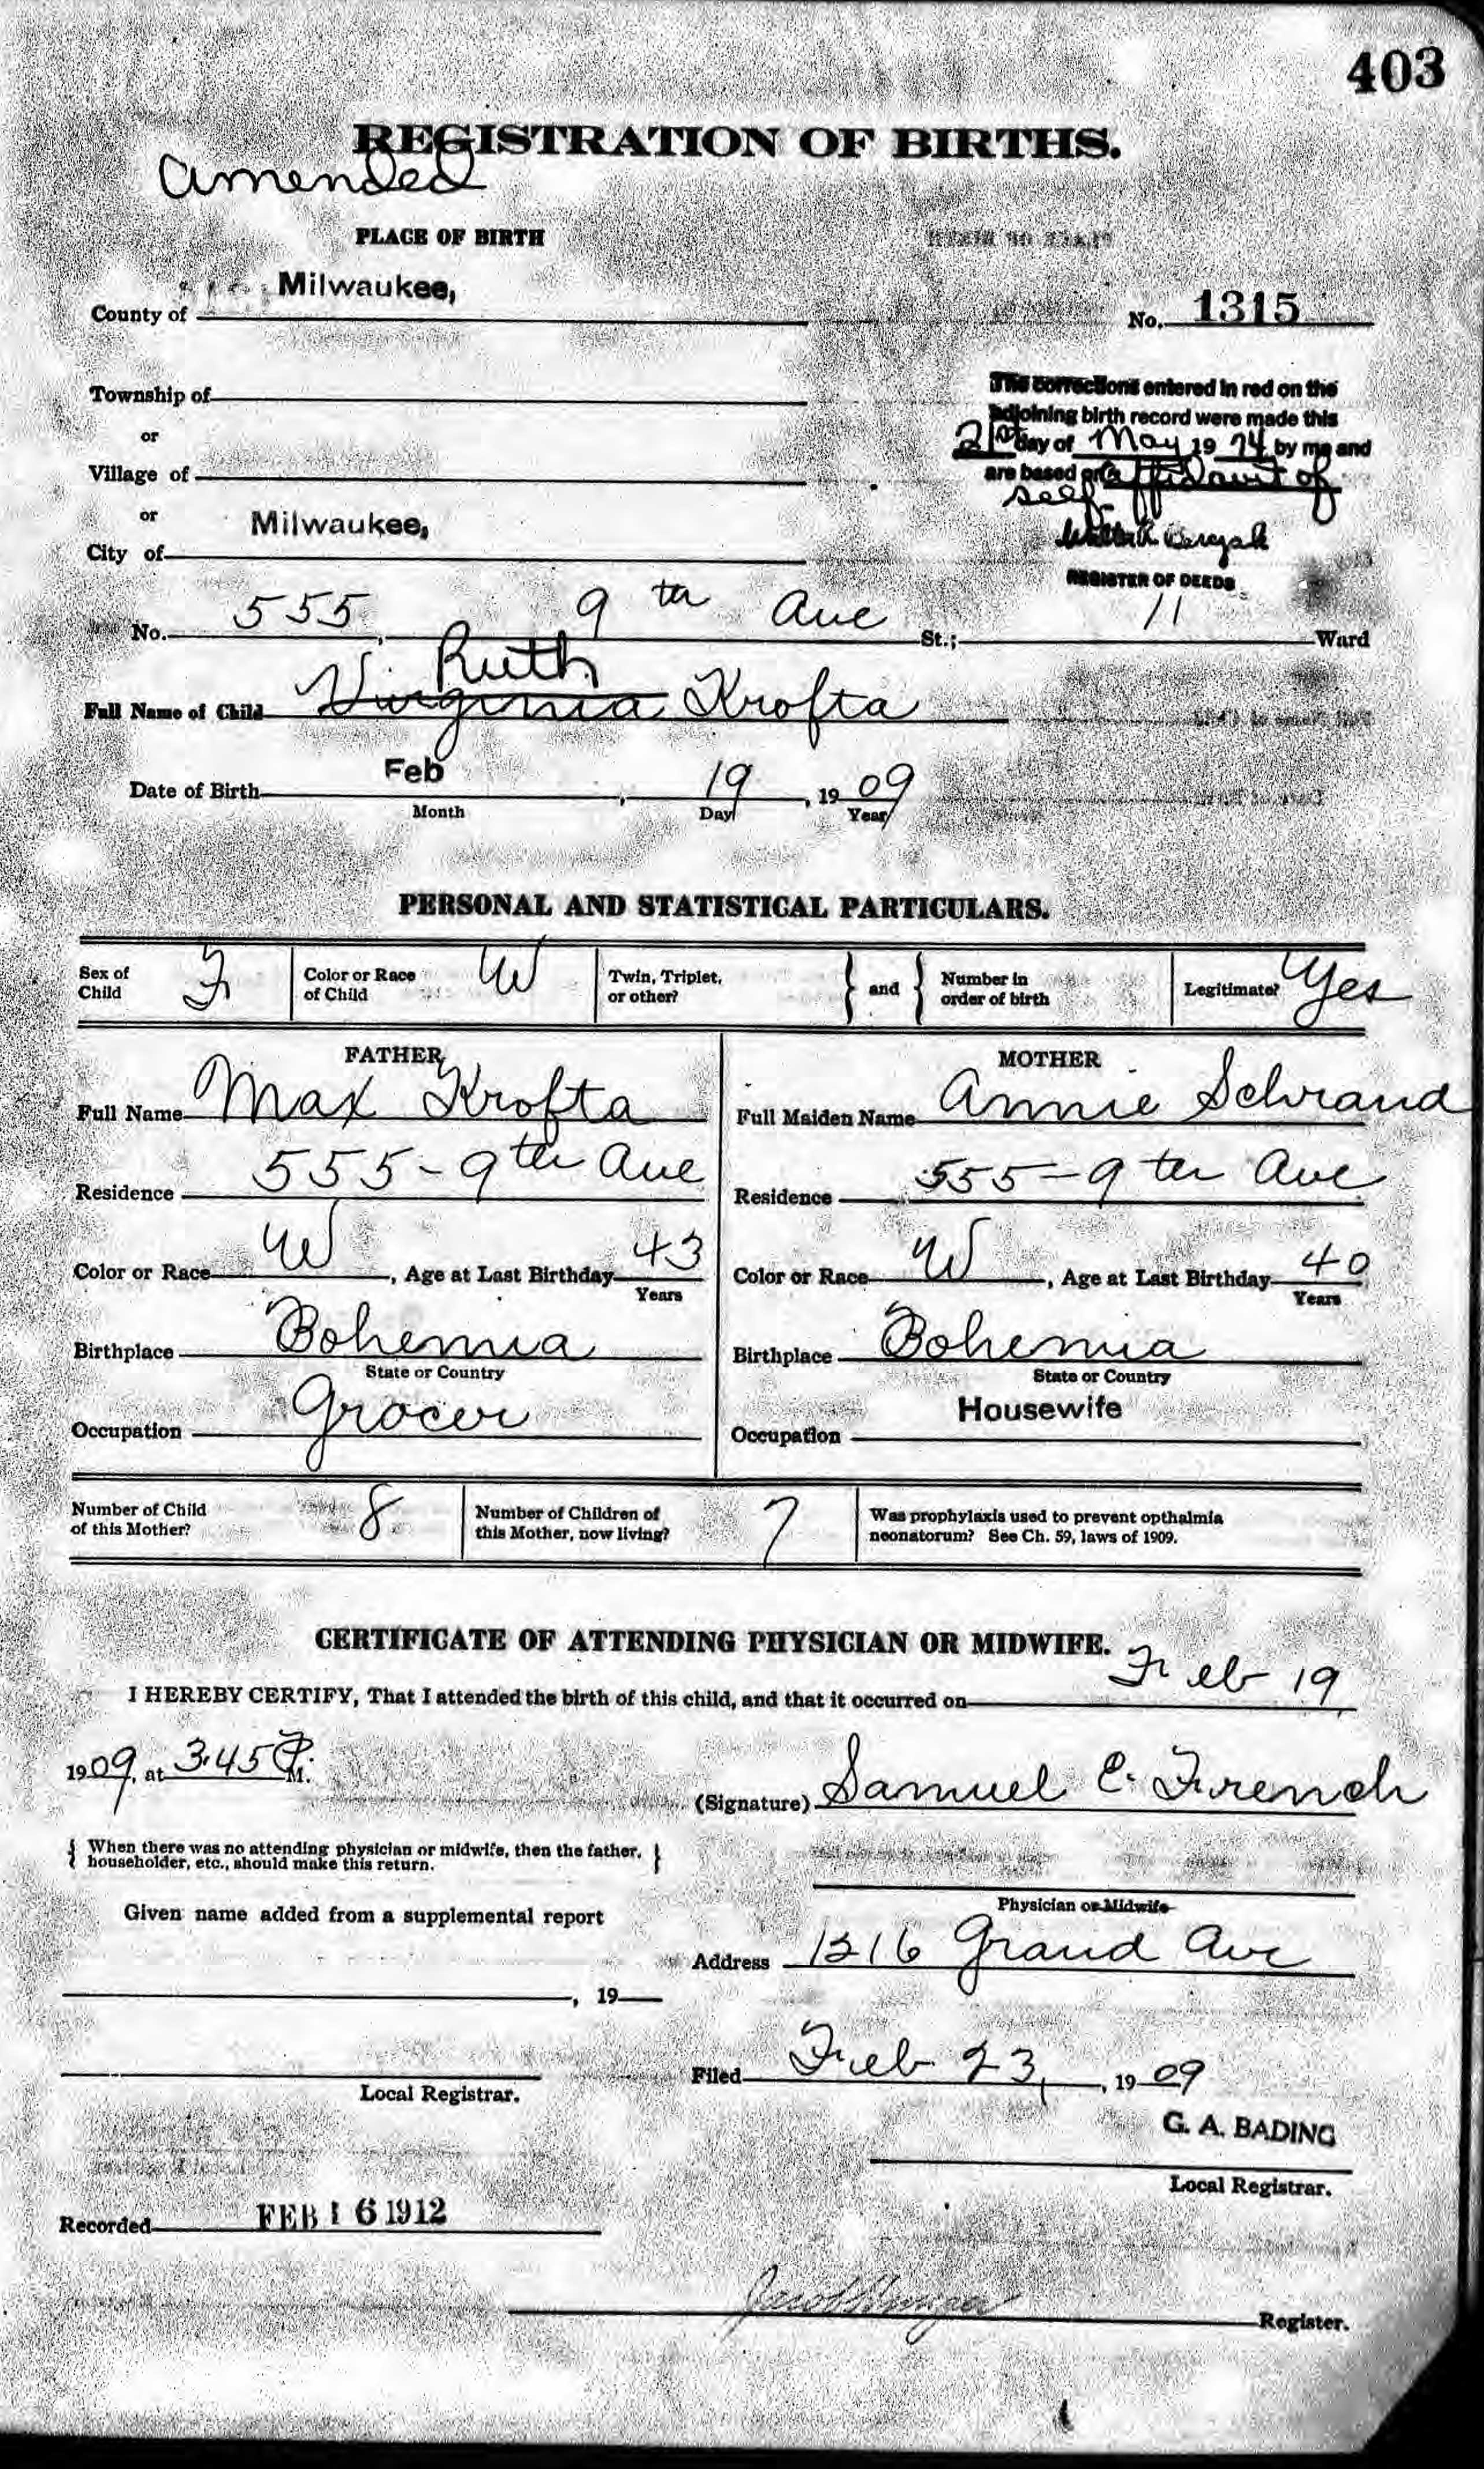 403
REGISTRATION OF BIRTHS.
Amended
PLACE OF BIRTH
County of Milwaukee,
No. 1315
Township of
or
Village of
or
City of Milwaukee,
The corrections entered in red on the
adjoining birth record were made this
21st day of May 19 74 by me and
are based on affidavit of
self
REGISTER OF DEEDS
No. 555, 9th Ave St.; 11 Ward
Ruth
Full Name of Child Virginia Krofta
Date of Birth Feb, 19, 1909
Month Day Year
PERSONAL AND STATISTICAL PARTICULARS.
Sex of Child F Color or Race of Child W Twin, Triplet, or other? } and { Number in order of birth Legitimate? Yes
FATHER MOTHER
Full Name Max Krofta Full Maiden Name Annie Schrand
Residence 555-9th Ave Residence 555-9th Ave
Color or Race W, Age at Last Birthday 43 Color or Race W, Age at Last Birthday 40
Years Years
Birthplace Bohemia Birthplace Bohemia
State or Country State or Country
Occupation Grocer Occupation Housewife
Number of Child of this Mother? 8 Number of Children of this Mother, now living? 7 Was prophylaxis used to prevent opthalmia neonatorum? See Ch. 59, laws of 1909.
CERTIFICATE OF ATTENDING PHYSICIAN OR MIDWIFE.
I HEREBY CERTIFY, That I attended the birth of this child, and that it occurred on Feb 19
1909, at 3.45 P. M.
(Signature) Samuel E. French
{ When there was no attending physician or midwife, then the father, householder, etc., should make this return. }
Physician or Midwife
Given name added from a supplemental report
Address 1216 Grand Ave
, 19
Filed Feb 23, 1909
Local Registrar.
G. A. BADING
Local Registrar.
Recorded FEB 16 1912
Register.